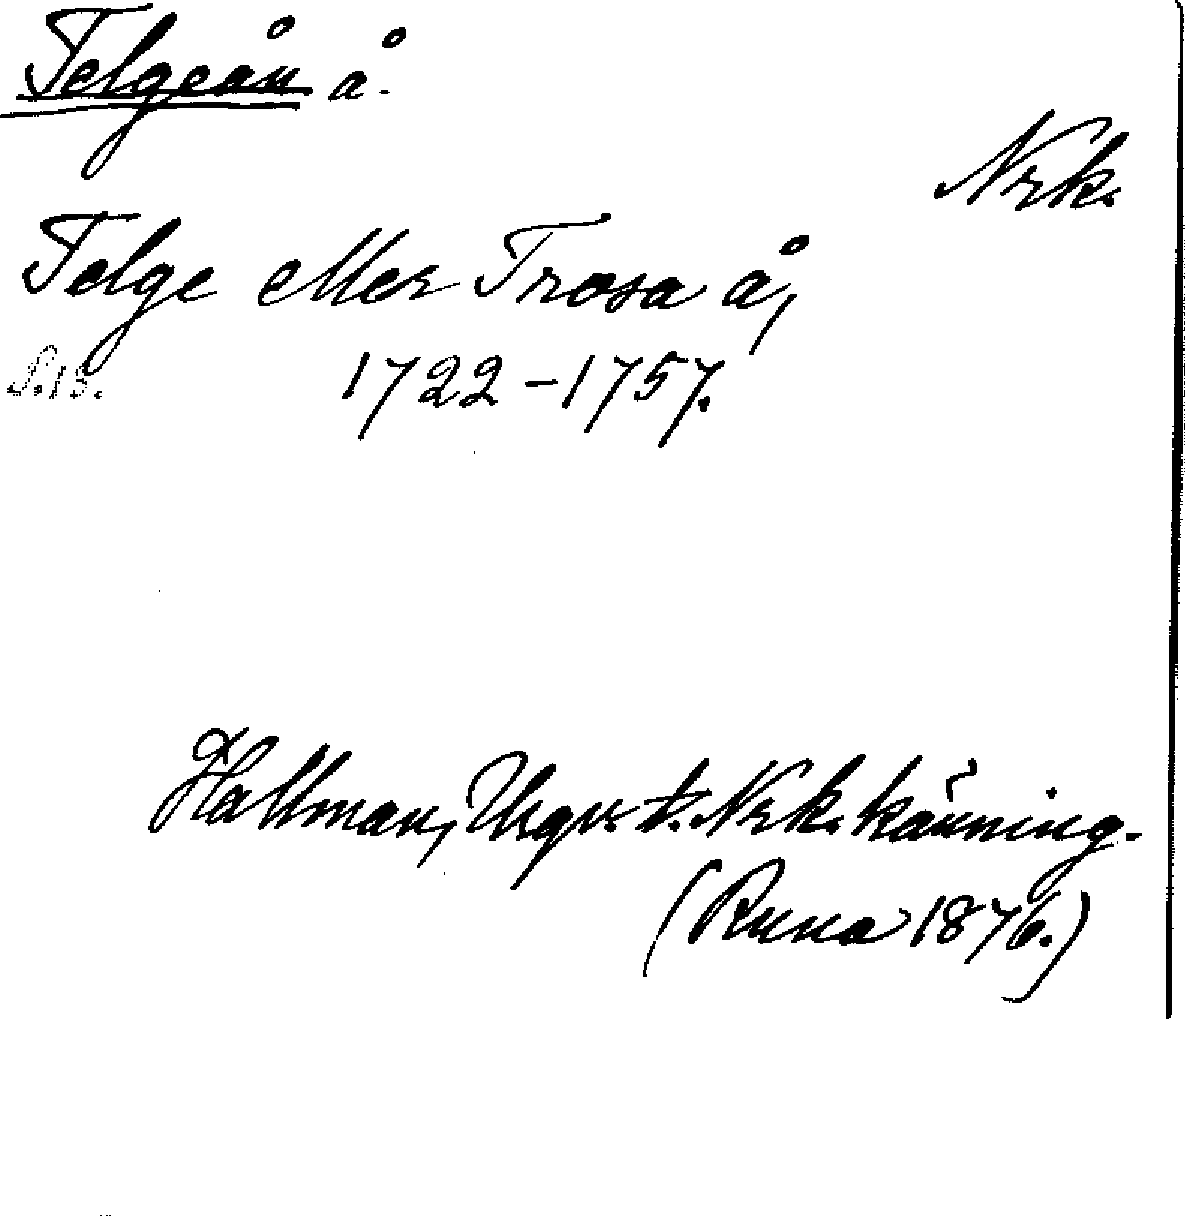 Telgeån å.
Nrk.
Telge eller Trosa å,
S. 13. 1722-1757.
Hallman, Utgr. t. Nrk. känning.
(Runa 1876.)